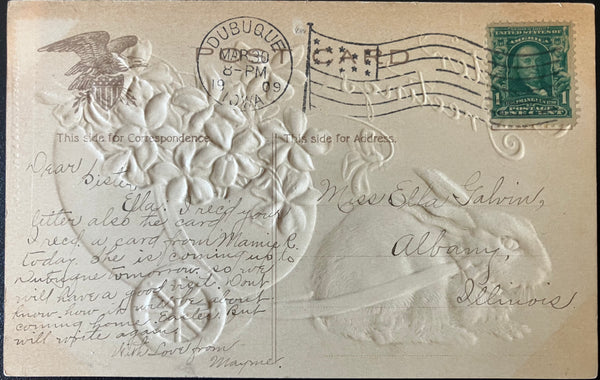 DUBUQUE
MAR 30
8-PM
1909
IOWA
POST CARD
UNITED STATES
POSTAGE
1 1
ONE CENT
This side for Correspondence.
This side for Address.
Dear Sister
Ella. I rec'd your
letter also the card
I recd a card from Mamie R.
today. She is coming up to
Dubuque tomorrow so we
will have a good visit. Dont
know how it will be about
coming home Easter. But
will write again
With Love from
Mayme.
Miss Ella Galvin,
Albany,
Illinois